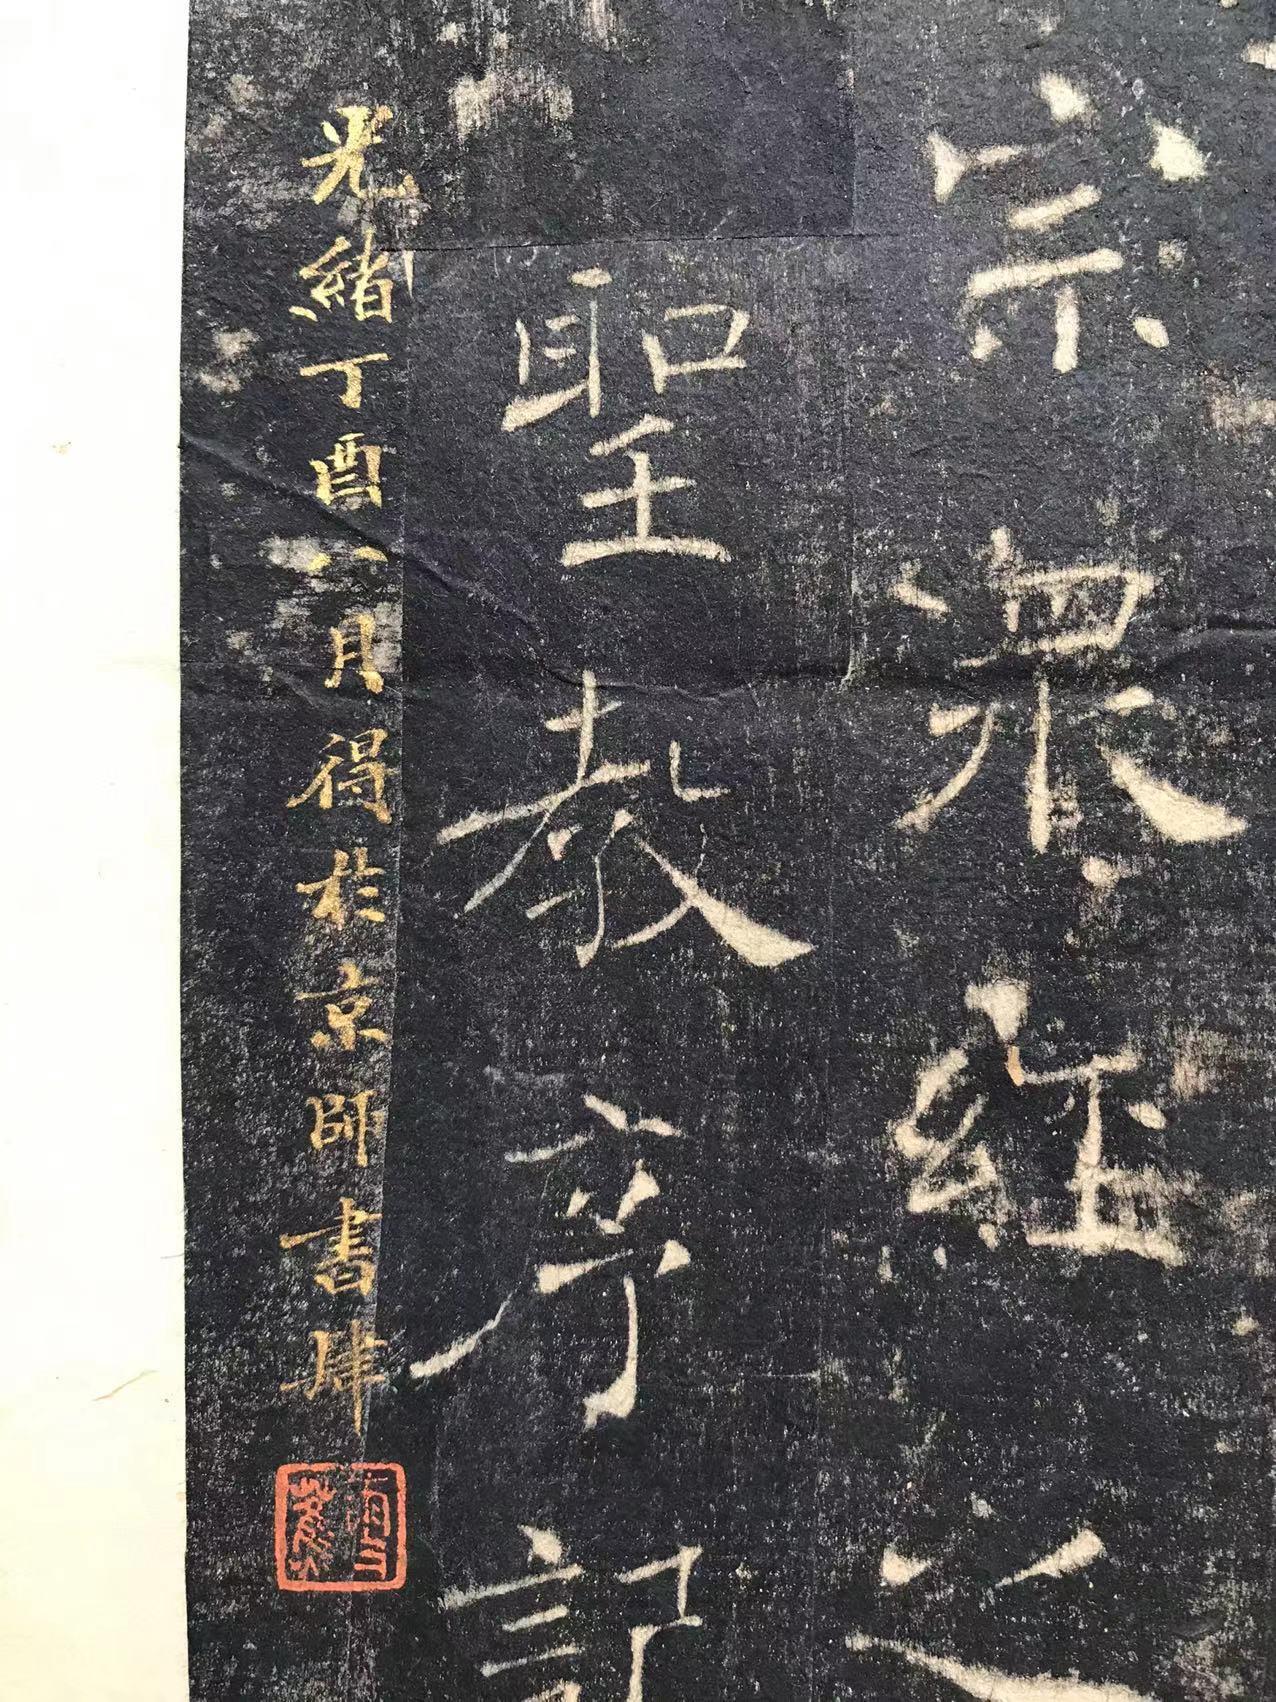 宗眾經之
聖教序記
光緒丁酉八月得於京師書肆